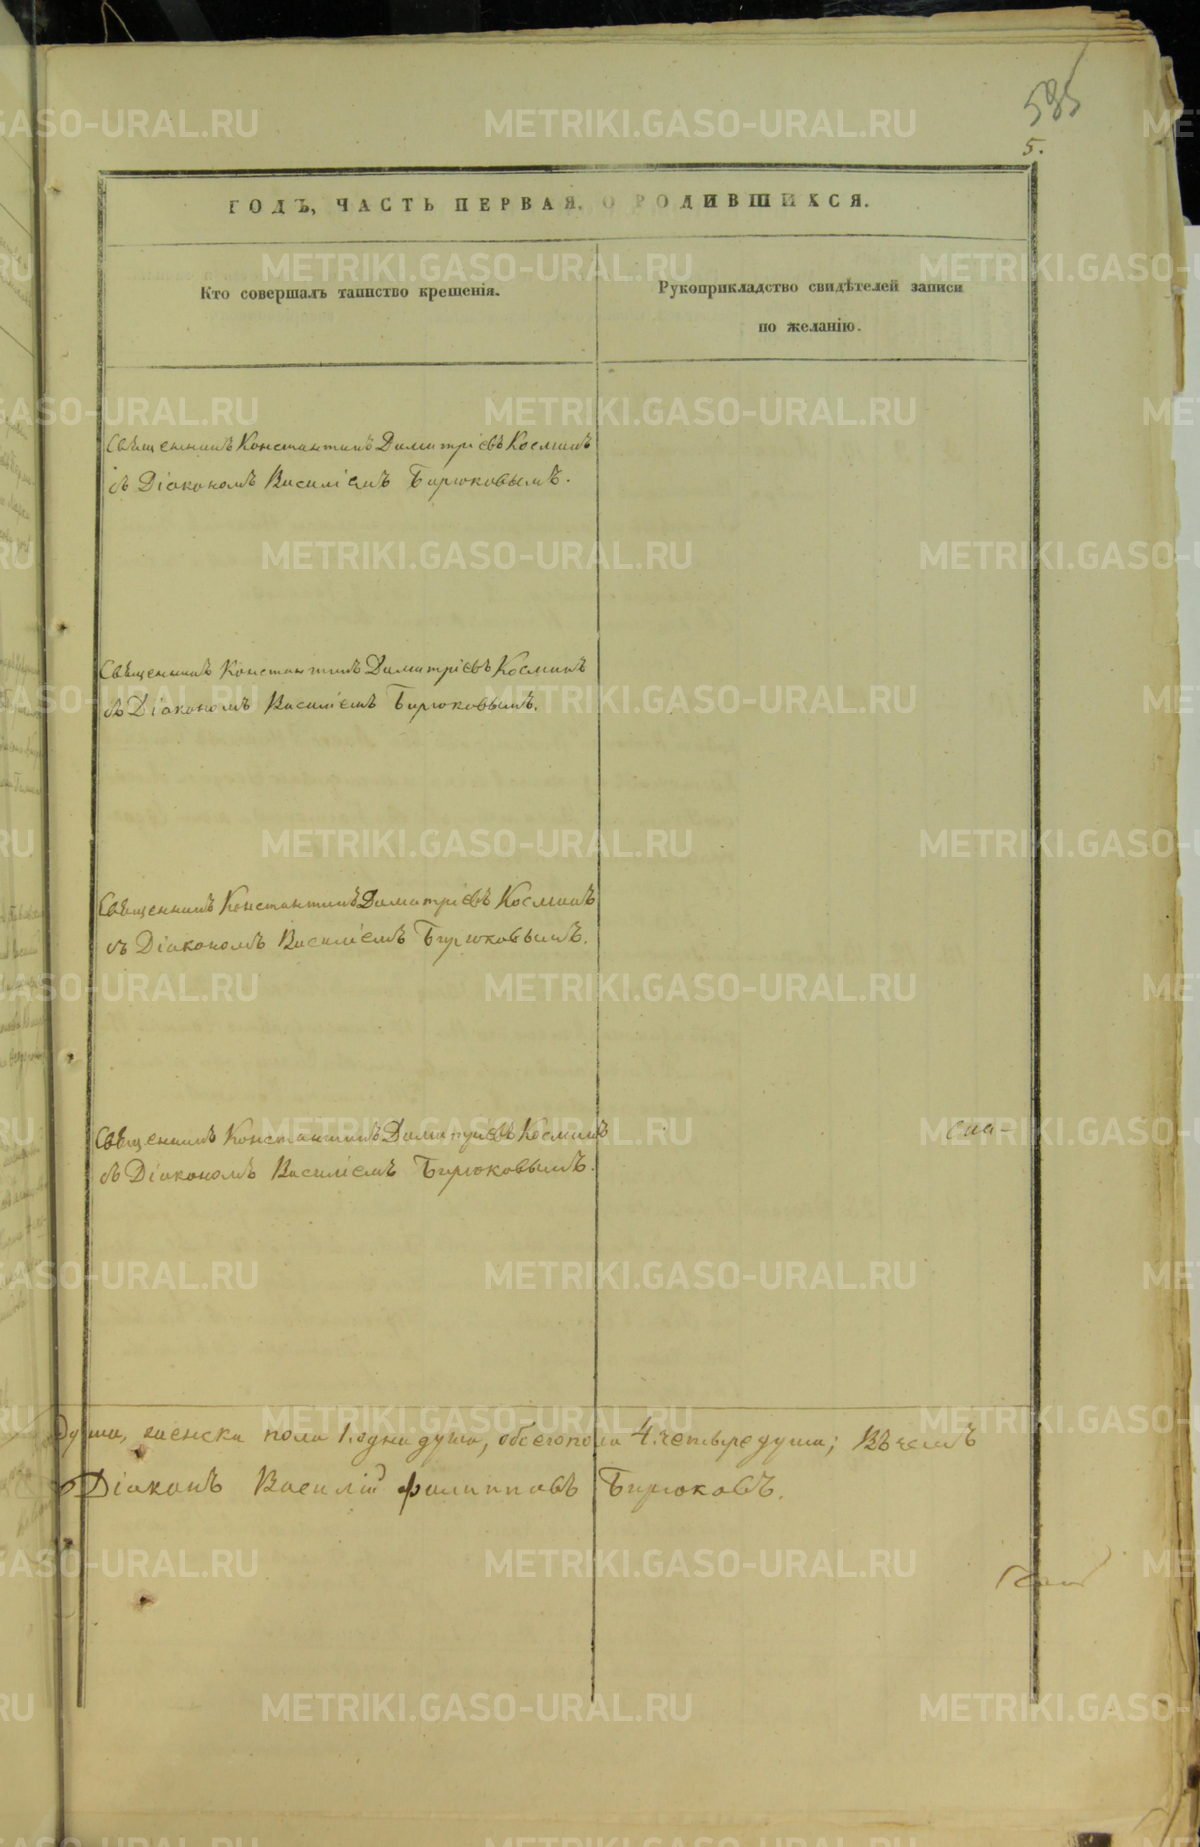 585
5.
ГОДЪ, ЧАСТЬ ПЕРВАЯ. О РОДИВШИХСЯ.
Кто совершалъ таинство крещенія.
Рукоприкладство свидѣтелей записи
по желанію.
Священникъ Константинъ Димитріевъ Косминъ
съ Діакономъ Василіемъ Бирюковымъ.
Священникъ Константинъ Димитріевъ Косминъ
съ Діакономъ Василіемъ Бирюковымъ.
Священникъ Константинъ Димитріевъ Косминъ
съ Діакономъ Василіемъ Бирюковымъ.
Священникъ Константинъ Димитріевъ Косминъ
съ Діакономъ Василіемъ Бирюковымъ.
душа, женска пола 1. одна душа, обоего пола 4. четыре души; Въ чемъ
Діаконъ Василій Филипповъ Бирюковъ.
METRIKI.GASO-URAL.RU